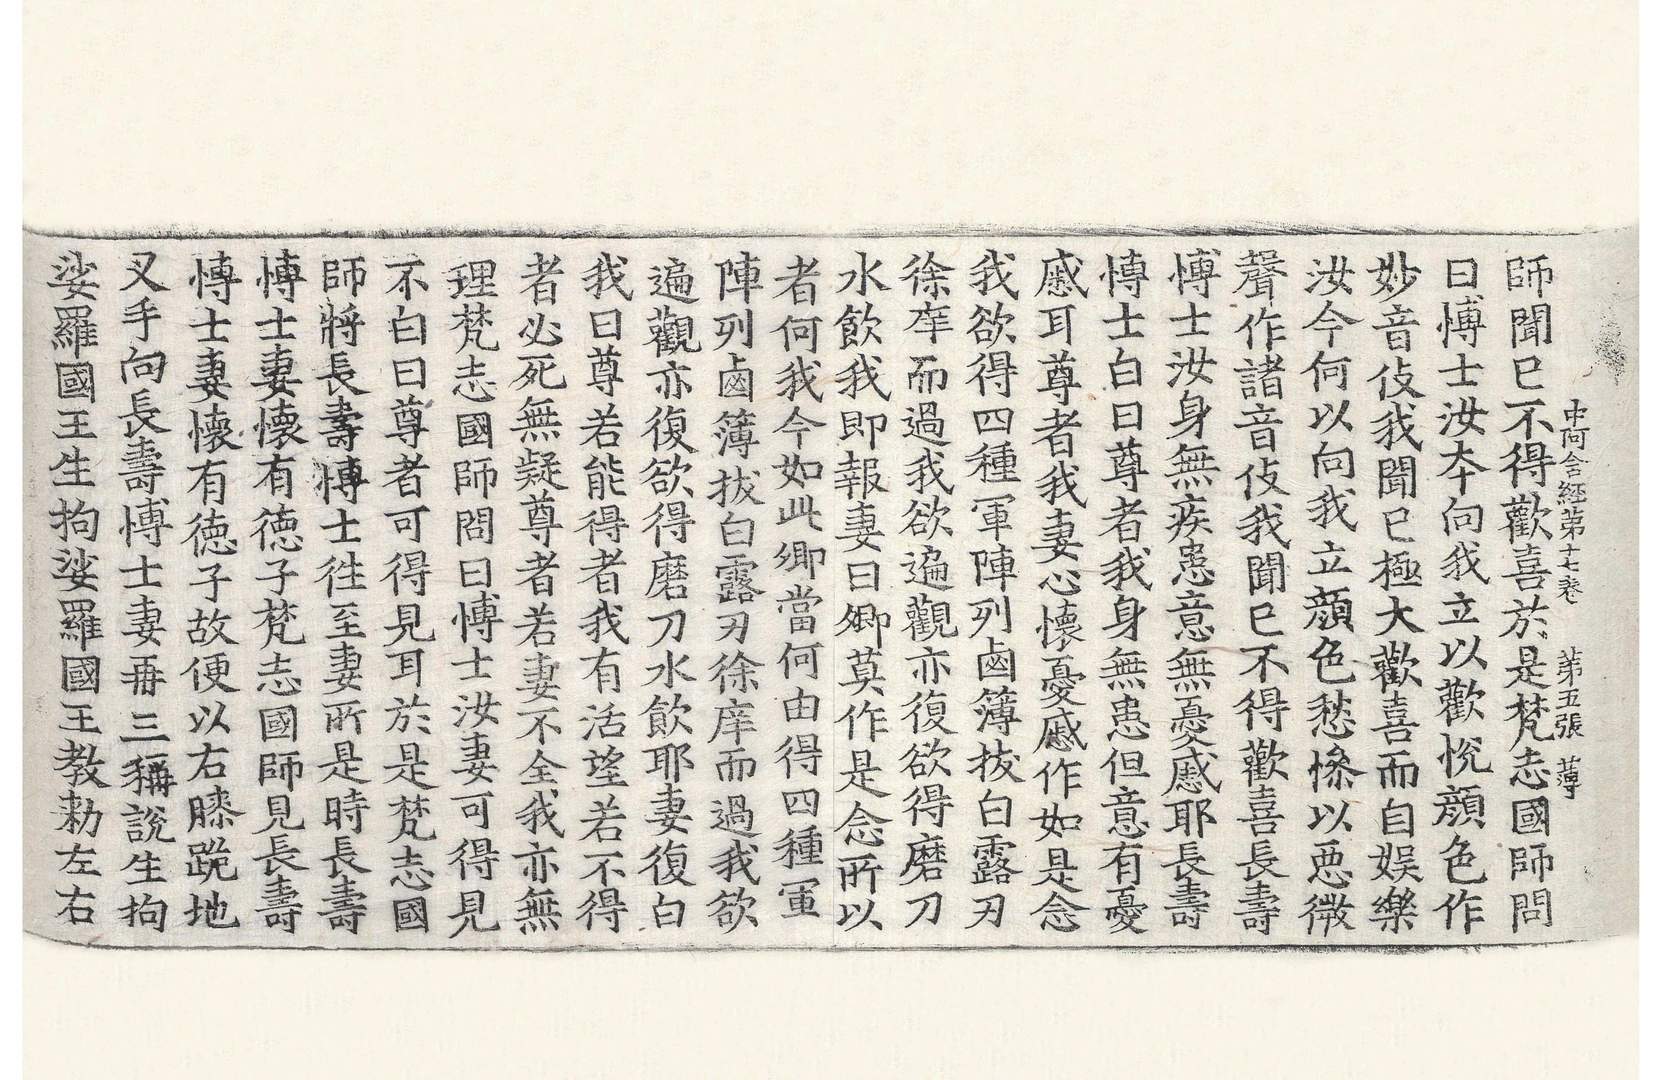 中阿含経第十七卷 第五張 薄
師聞已不得歡喜於是梵志國師問
曰愽士汝夲向我立以歡恱顔色作
妙音伎我聞已極大歡喜而自娱樂
汝今何以向我立顔色愁慘以惡微
聲作諸音伎我聞已不得歡喜長壽
愽士汝身無疾患意無憂慼耶長壽
愽士白曰尊者我身無患但意有憂
慼耳尊者我妻心懷憂慼作如是念
我欲得四種軍陣列鹵簿拔白露刃
徐庠而過我欲遍觀亦復欲得磨刀
水飲我即報妻曰卿莫作是念所以
者何我今如此卿當何由得四種軍
陣列鹵簿拔白露刃徐庠而過我欲
遍觀亦復欲得磨刀水飲耶妻復白
我曰尊若能得者我有活望若不得
者必死無疑尊者若妻不全我亦無
理梵志國師問曰愽士汝妻可得見
不白曰尊者可得見耳於是梵志國
師將長壽愽士徃至妻所是時長壽
愽士妻懷有德子梵志國師見長壽
愽士妻懷有徳子故便以右膝跪地
叉手向長壽愽士妻再三稱說生拘
娑羅國王生拘娑羅國王教勑左右